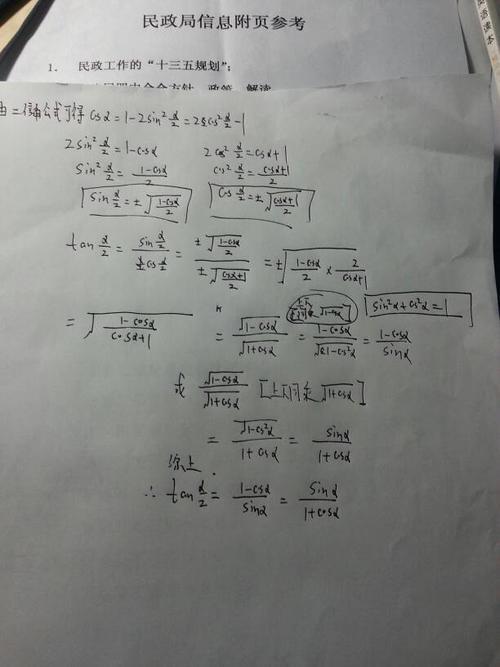 民政局信息附页参考
1. 民政工作的“十三五规划”；
由二倍角公式可得 cosα=1-2sin²α/2=2cos²α/2-1
2sin²α/2=1-cosα 2cos²α/2=cosα+1
sin²α/2=(1-cosα)/2 cos²α/2=(cosα+1)/2
sinα/2=±√((1-cosα)/2) cosα/2=±√((cosα+1)/2)
tanα/2=(sinα/2)/(cosα/2)=(±√((1-cosα)/2))/(±√((cosα+1)/2))=±√((1-cosα)/2×2/(cosα+1))
上下同乘√(1-cosα) sin²α+cos²α=1
=√((1-cosα)/(cosα+1)) =√(1-cosα)/√(1+cosα)=(1-cosα)/√(1-cos²α)=(1-cosα)/sinα
或 √(1-cosα)/√(1+cosα) [上下同乘√(1+cosα)]
=√(1-cos²α)/(1+cosα)=sinα/(1+cosα)
综上
∴ tanα/2=(1-cosα)/sinα=sinα/(1+cosα)